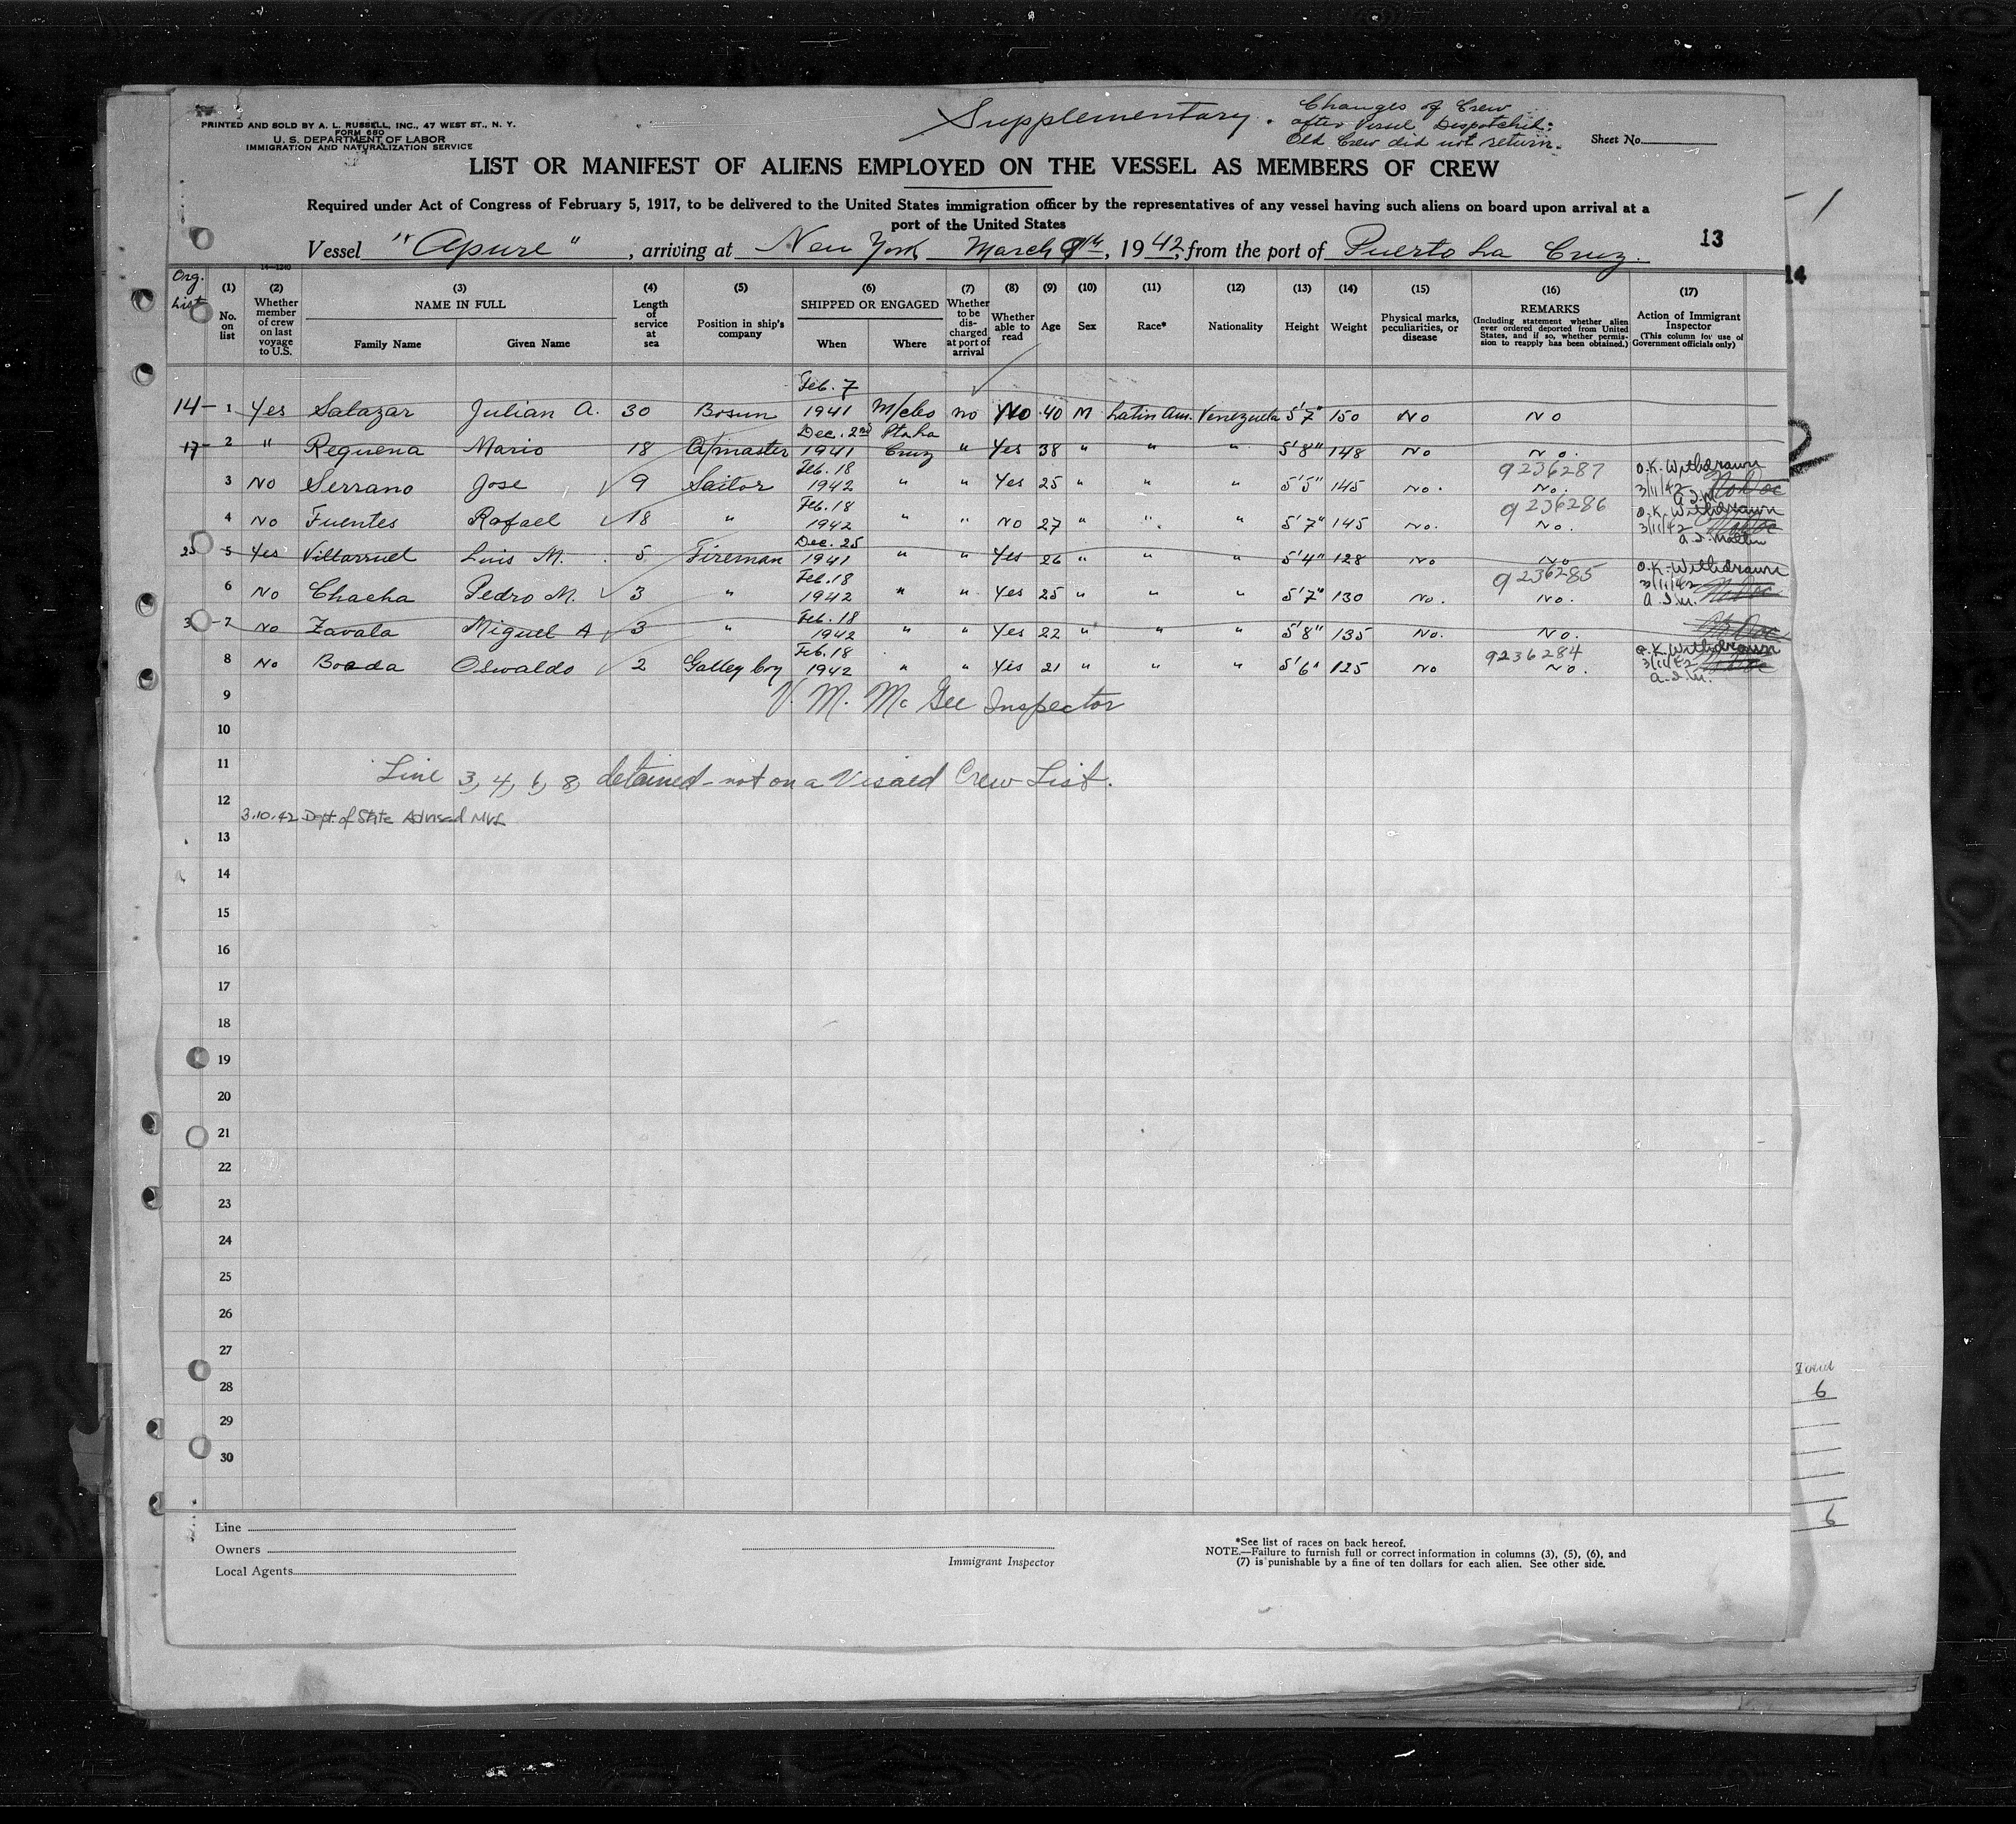 Supplementary. Changes of Crew
after Vessel Despatched:
Old Crew did not return.
PRINTED AND SOLD BY A. L. RUSSELL, INC., 47 WEST ST., N. Y.
FORM 680
U. S. DEPARTMENT OF LABOR
IMMIGRATION AND NATURALIZATION SERVICE
Sheet No.
LIST OR MANIFEST OF ALIENS EMPLOYED ON THE VESSEL AS MEMBERS OF CREW
Required under Act of Congress of February 5, 1917, to be delivered to the United States immigration officer by the representatives of any vessel having such aliens on board upon arrival at a
port of the United States
13
Vessel "Apure", arriving at New York March 9th, 1942, from the port of Puerto La Cruz.
14
Org. List
(1) No. on list
(2) Whether member of crew on last voyage to U.S.
(3) NAME IN FULL Family Name Given Name
(4) Length of service at sea
(5) Position in ship's company
(6) SHIPPED OR ENGAGED When Where
(7) Whether to be discharged at port of arrival
(8) Whether able to read
(9) Age
(10) Sex
(11) Race*
(12) Nationality
(13) Height
(14) Weight
(15) Physical marks, peculiarities, or disease
(16) REMARKS (Including statement whether alien ever ordered deported from United States, and if so, whether permission to reapply has been obtained.)
(17) Action of Immigrant Inspector (This column for use of Government officials only)
14- 1 Yes Salazar Julian A. 30 Bosun Feb. 7 1941 M/cbo no No 40 M Latin Am. Venezuela 5'7" 150 No No
17- 2 " Requena Mario 18 Q/master Dec. 2nd 1941 Pto La Cruz " Yes 38 " " " 5'8" 148 No No.
3 No Serrano Jose 9 Sailor Feb. 18 1942 " " Yes 25 " " " 5'5" 145 No. 9236287 No. O.K. Withdrawn 3/11/42 No Doc
4 No Fuentes Rafael 18 " Feb. 18 1942 " " No 27 " " " 5'7" 145 No. 9236286 No. O.K. Withdrawn 3/11/42
25 5 Yes Villarruel Luis M. 5 Fireman Dec. 25 1941 " " Yes 26 " " " 5'4" 128 No No
6 No Chacha Pedro M. 3 " Feb. 18 1942 " " Yes 25 " " " 5'7" 130 No. 9236285 No. O.K. Withdrawn 3/11/42 No Doc
3 -7 No Zavala Miguel A 3 " Feb. 18 1942 " " Yes 22 " " " 5'8" 135 No. No.
8 No Boada Oswaldo 2 Galley boy Feb. 18 1942 " " Yes 21 " " " 5'6" 125 No 9236284 No. O.K. Withdrawn 3/11/42
9
V. M. McGee Inspector
10
11
Line 3, 4, 6, 8, detained - not on a Visaed Crew List.
12
3.10.42 Dept. of State Advised
13
14
15
16
17
18
19
20
21
22
23
24
25
26
27
28
29
30
Total
6
6
Line
Owners
Local Agents
Immigrant Inspector
*See list of races on back hereof.
NOTE.—Failure to furnish full or correct information in columns (3), (5), (6), and
(7) is punishable by a fine of ten dollars for each alien. See other side.